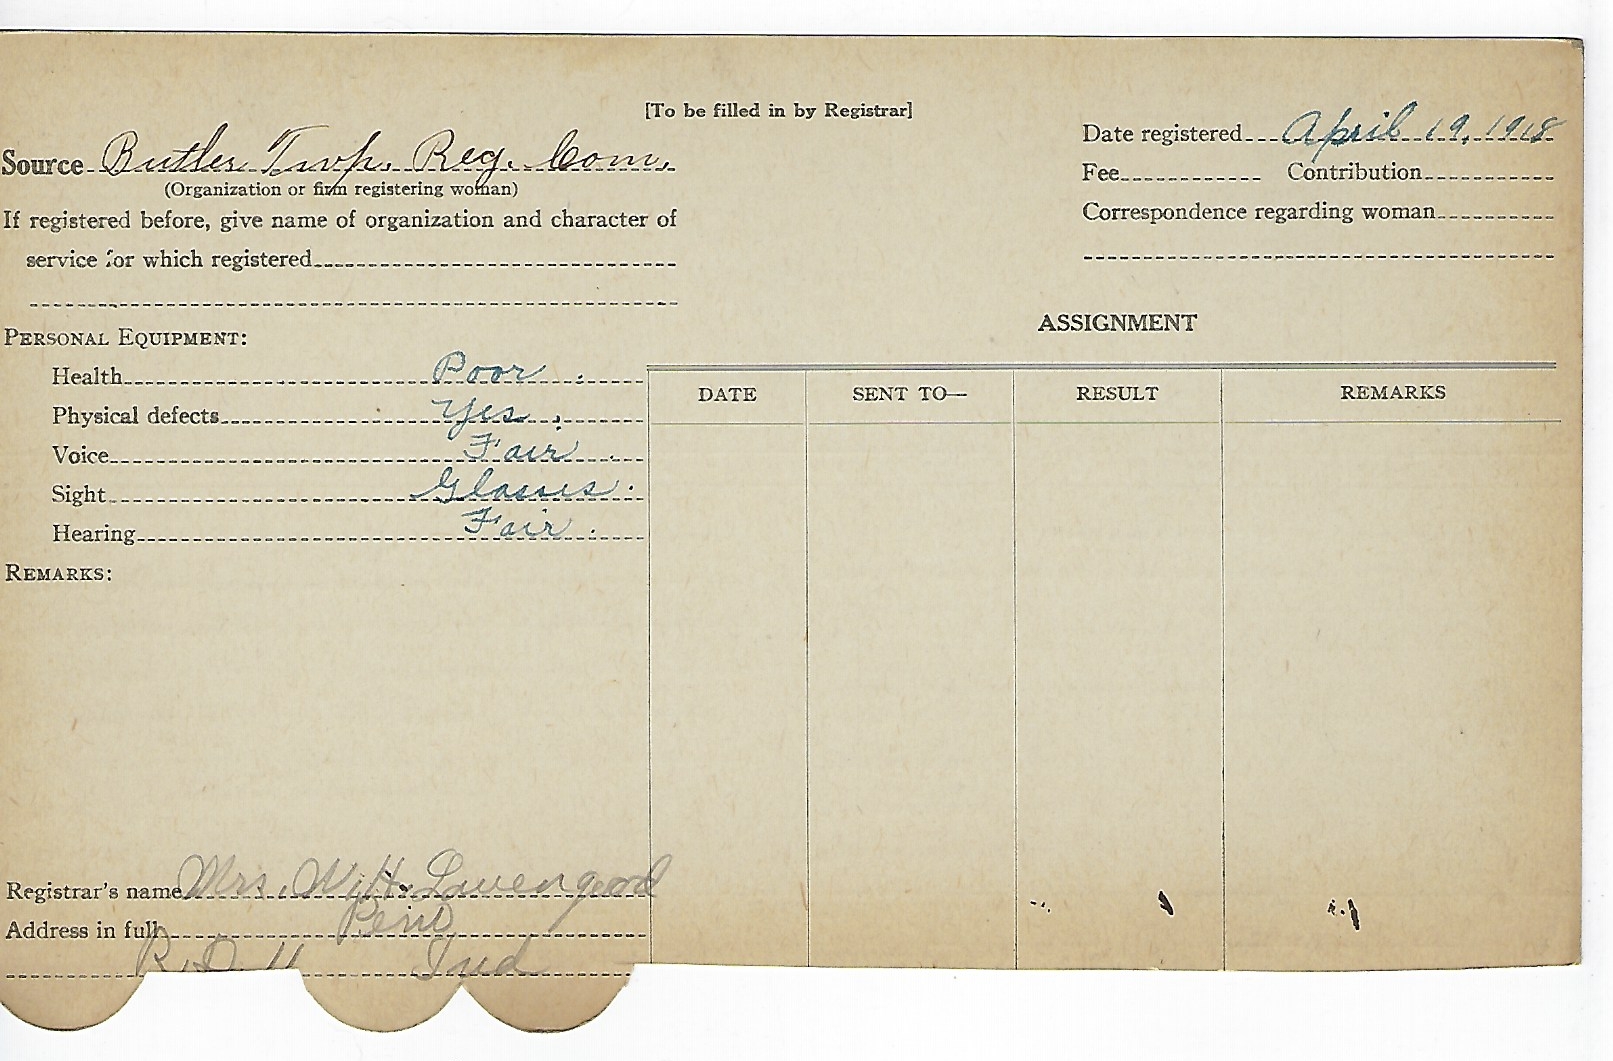 [To be filled in by Registrar]
Source Butler Twp. Reg. Com.
(Organization or firm registering woman)
If registered before, give name of organization and character of
service for which registered
Date registered April 19, 1918
Fee Contribution
Correspondence regarding woman
PERSONAL EQUIPMENT:
Health Poor
Physical defects Yes
Voice Fair
Sight Glasses
Hearing Fair
REMARKS:
ASSIGNMENT
DATE SENT TO— RESULT REMARKS
Registrar's name Mrs. W. H. Lavengood
Address in full Peru
R. D. 11 Ind